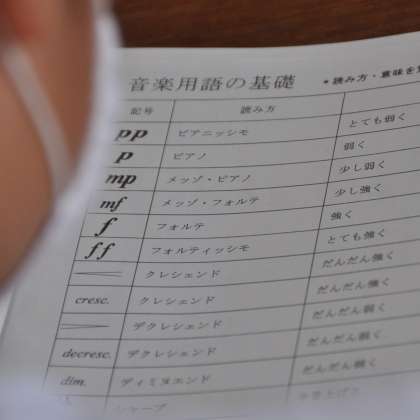 音楽用語の基礎 * 読み方・意味を
記号 読み方
pp ピアニッシモ とても弱く
p ピアノ 弱く
mp メッゾ・ピアノ 少し弱く
mf メッゾ・フォルテ 少し強く
f フォルテ 強く
ff フォルティッシモ とても強く
クレシェンド だんだん強く
cresc. クレシェンド だんだん強く
デクレシェンド だんだん弱く
decresc. デクレシェンド だんだん弱く
dim. ディミヌエンド だんだん弱く
シャープ